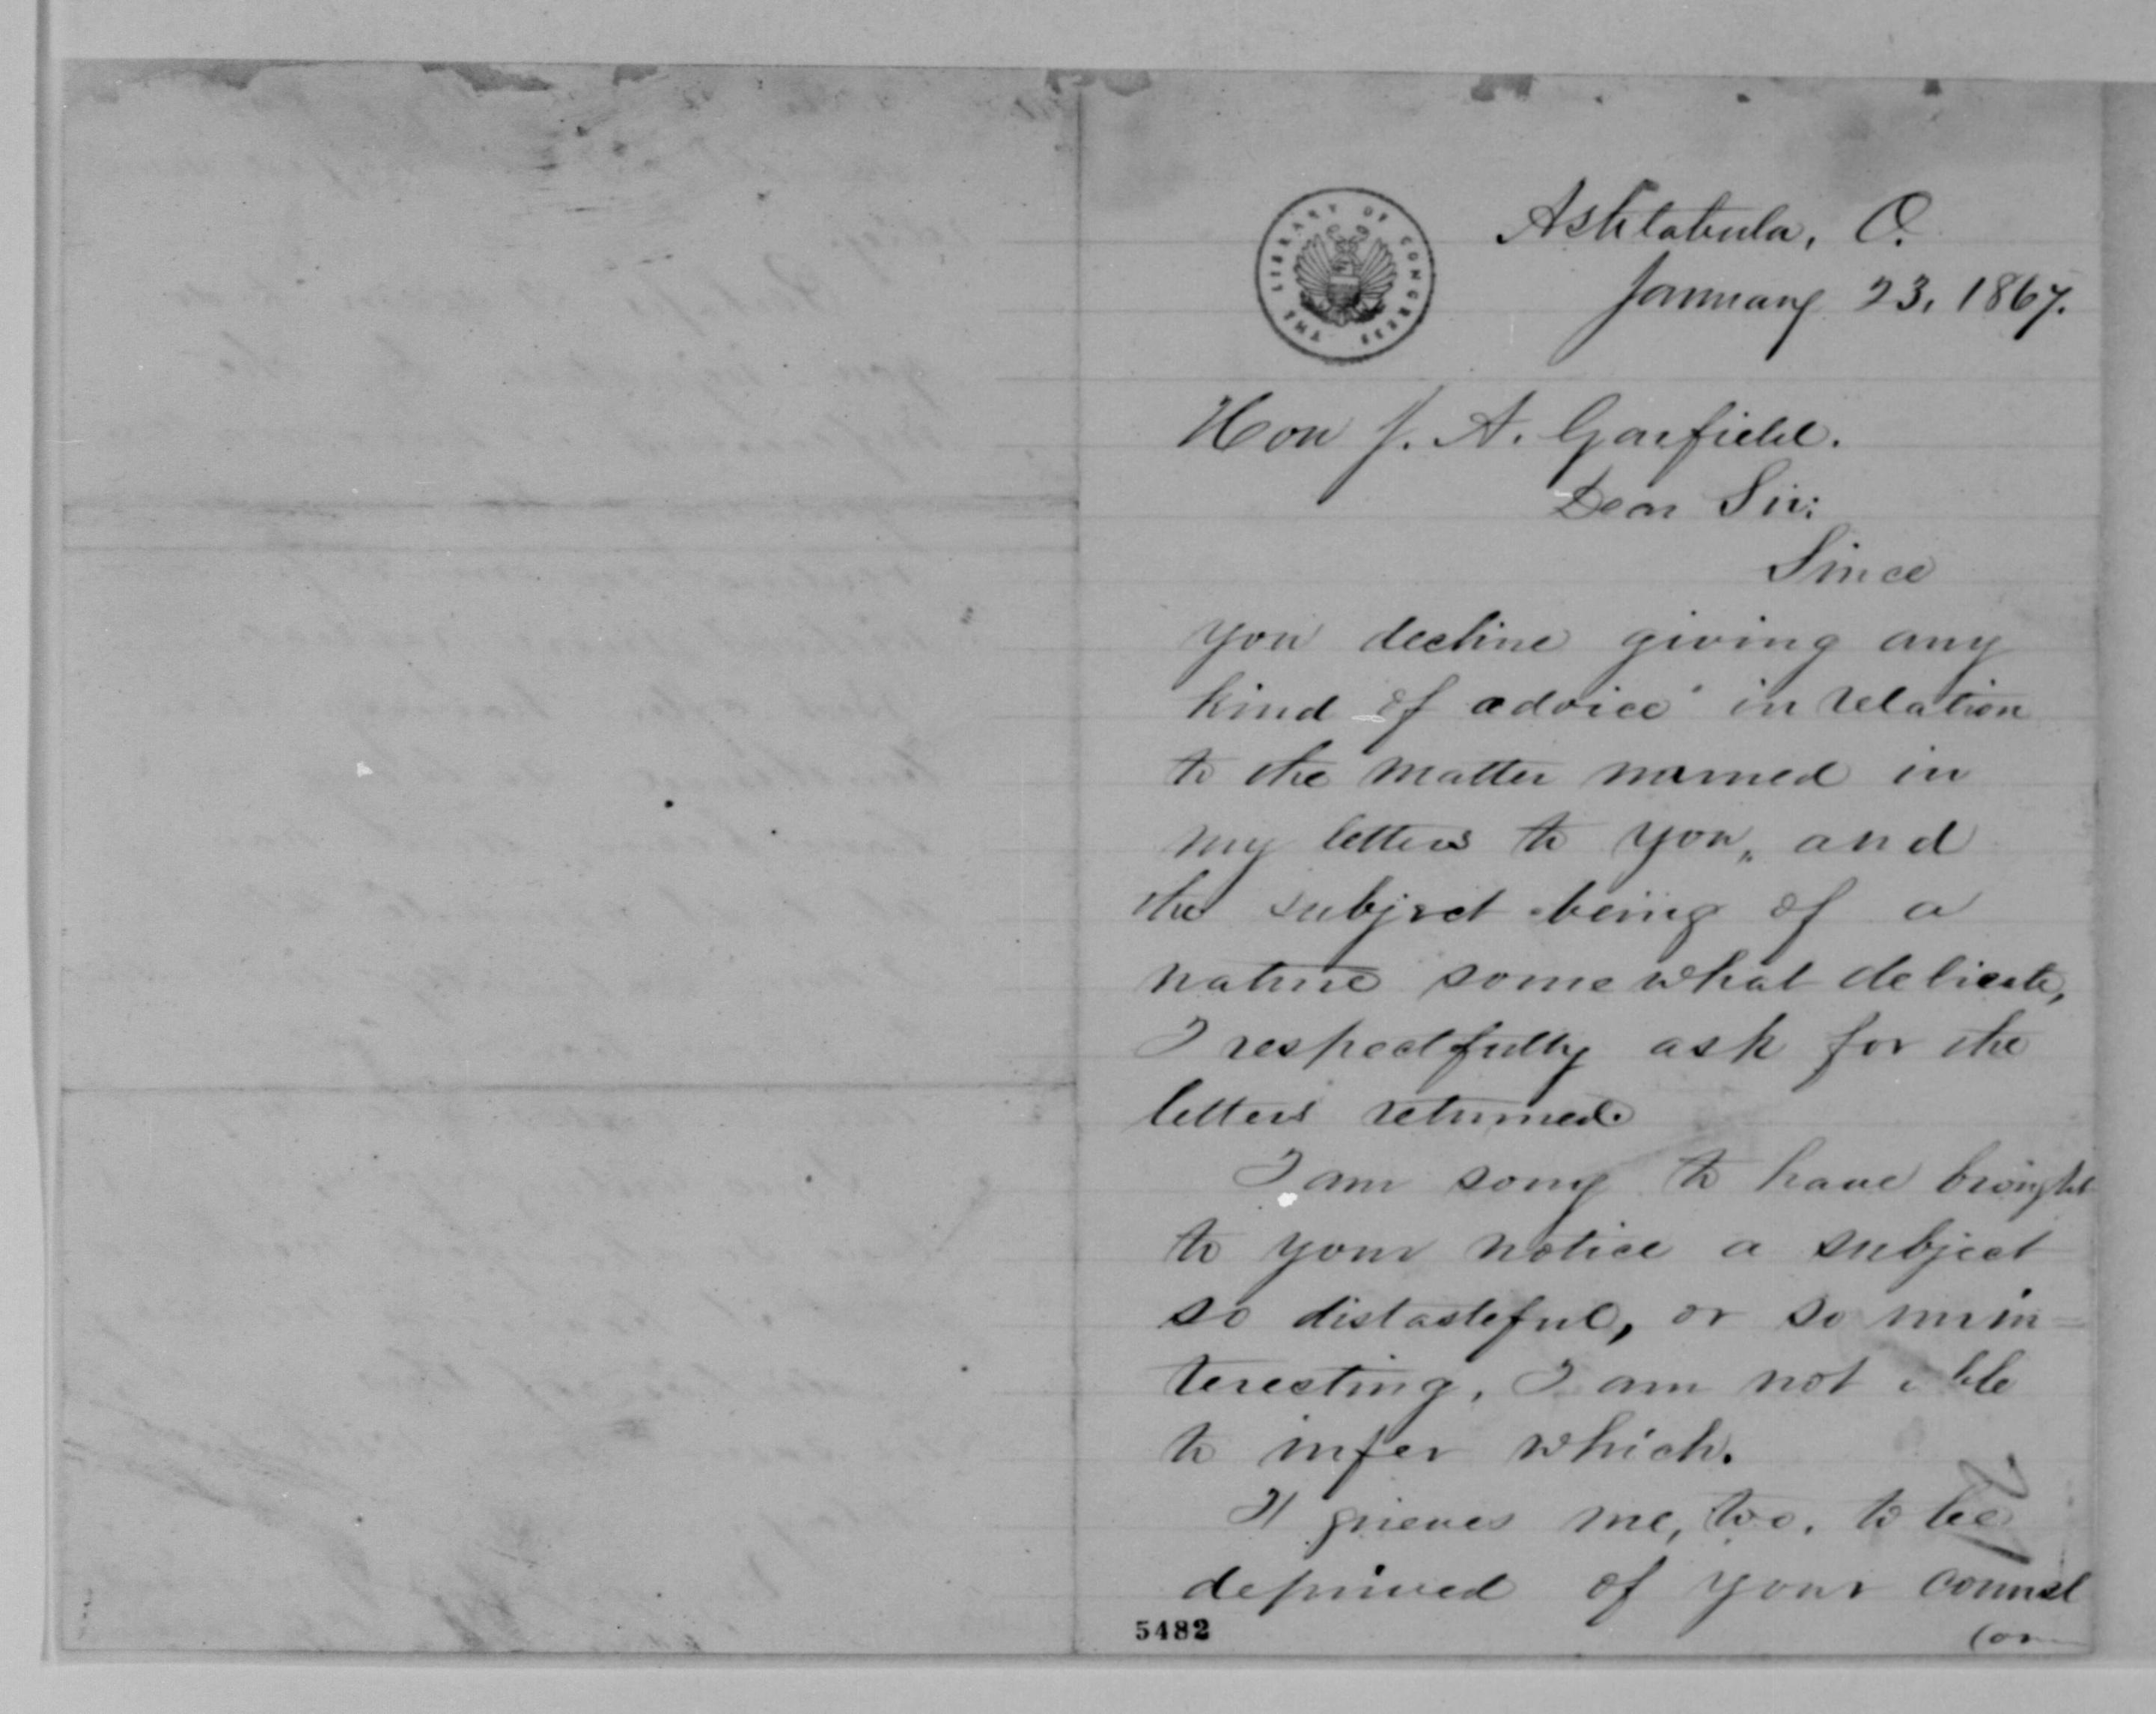 THE LIBRARY OF CONGRESS
Ashtabula, O.
January 23, 1867.
Hon J. A. Garfield.
Dear Sir:
Since
you decline giving any
kind of advice in relation
to the matter named in
my letters to you, and
the subject being of a
nature somewhat delicate,
I respectfully ask for the
letters returned.
I am sorry to have brought
to your notice a subject
so distasteful, or so unin=
teresting, I am not able
to infer which.
It grieves me, too, to be
deprived of your counsel
5482